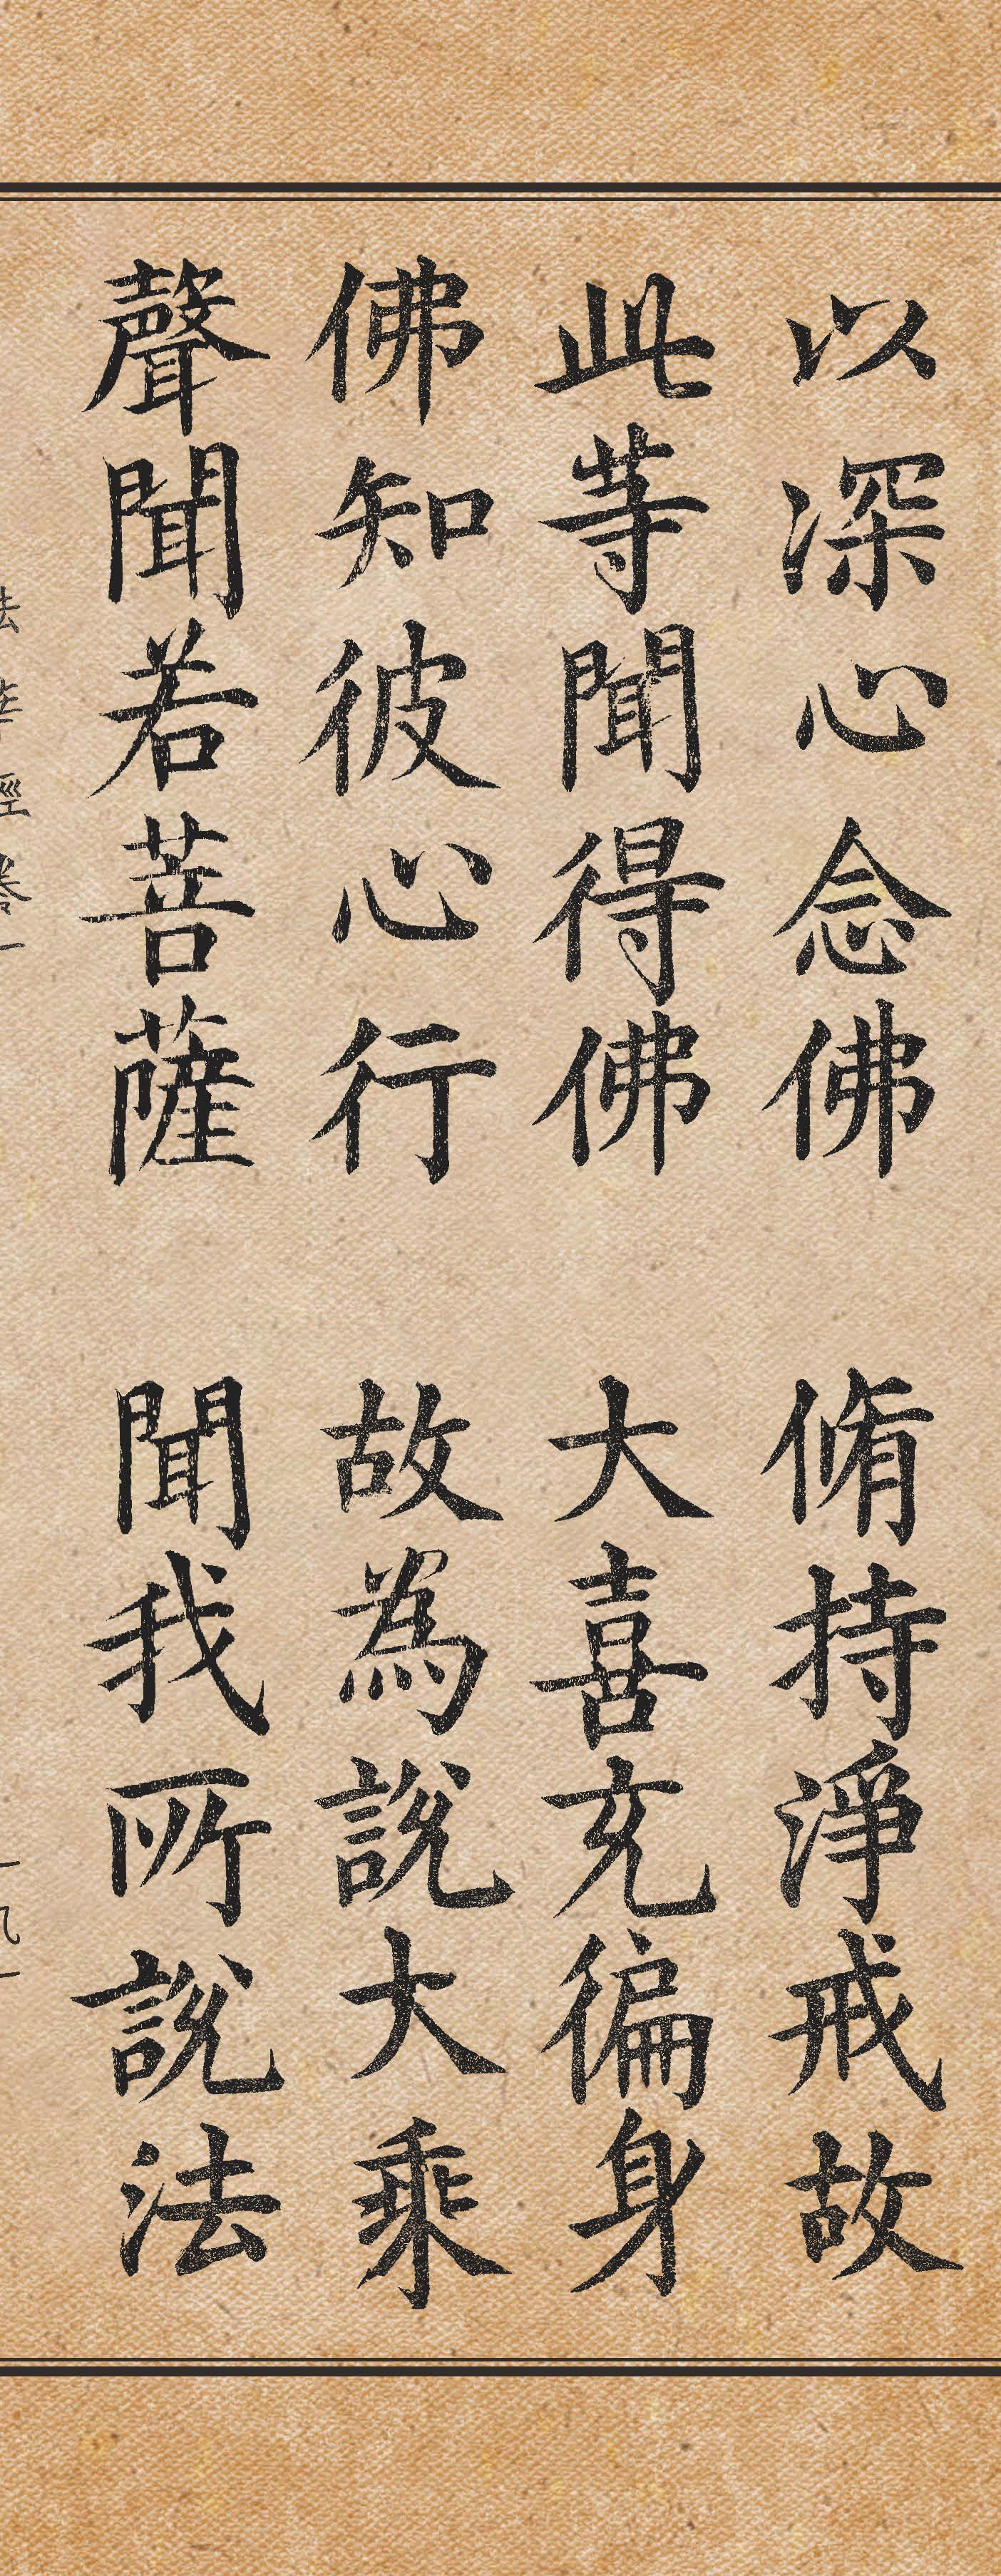 以深心念佛　脩持淨戒故
此等聞得佛　大喜充徧身
佛知彼心行　故為說大乘
聲聞若菩薩　聞我所說法
法華經卷一　一九一